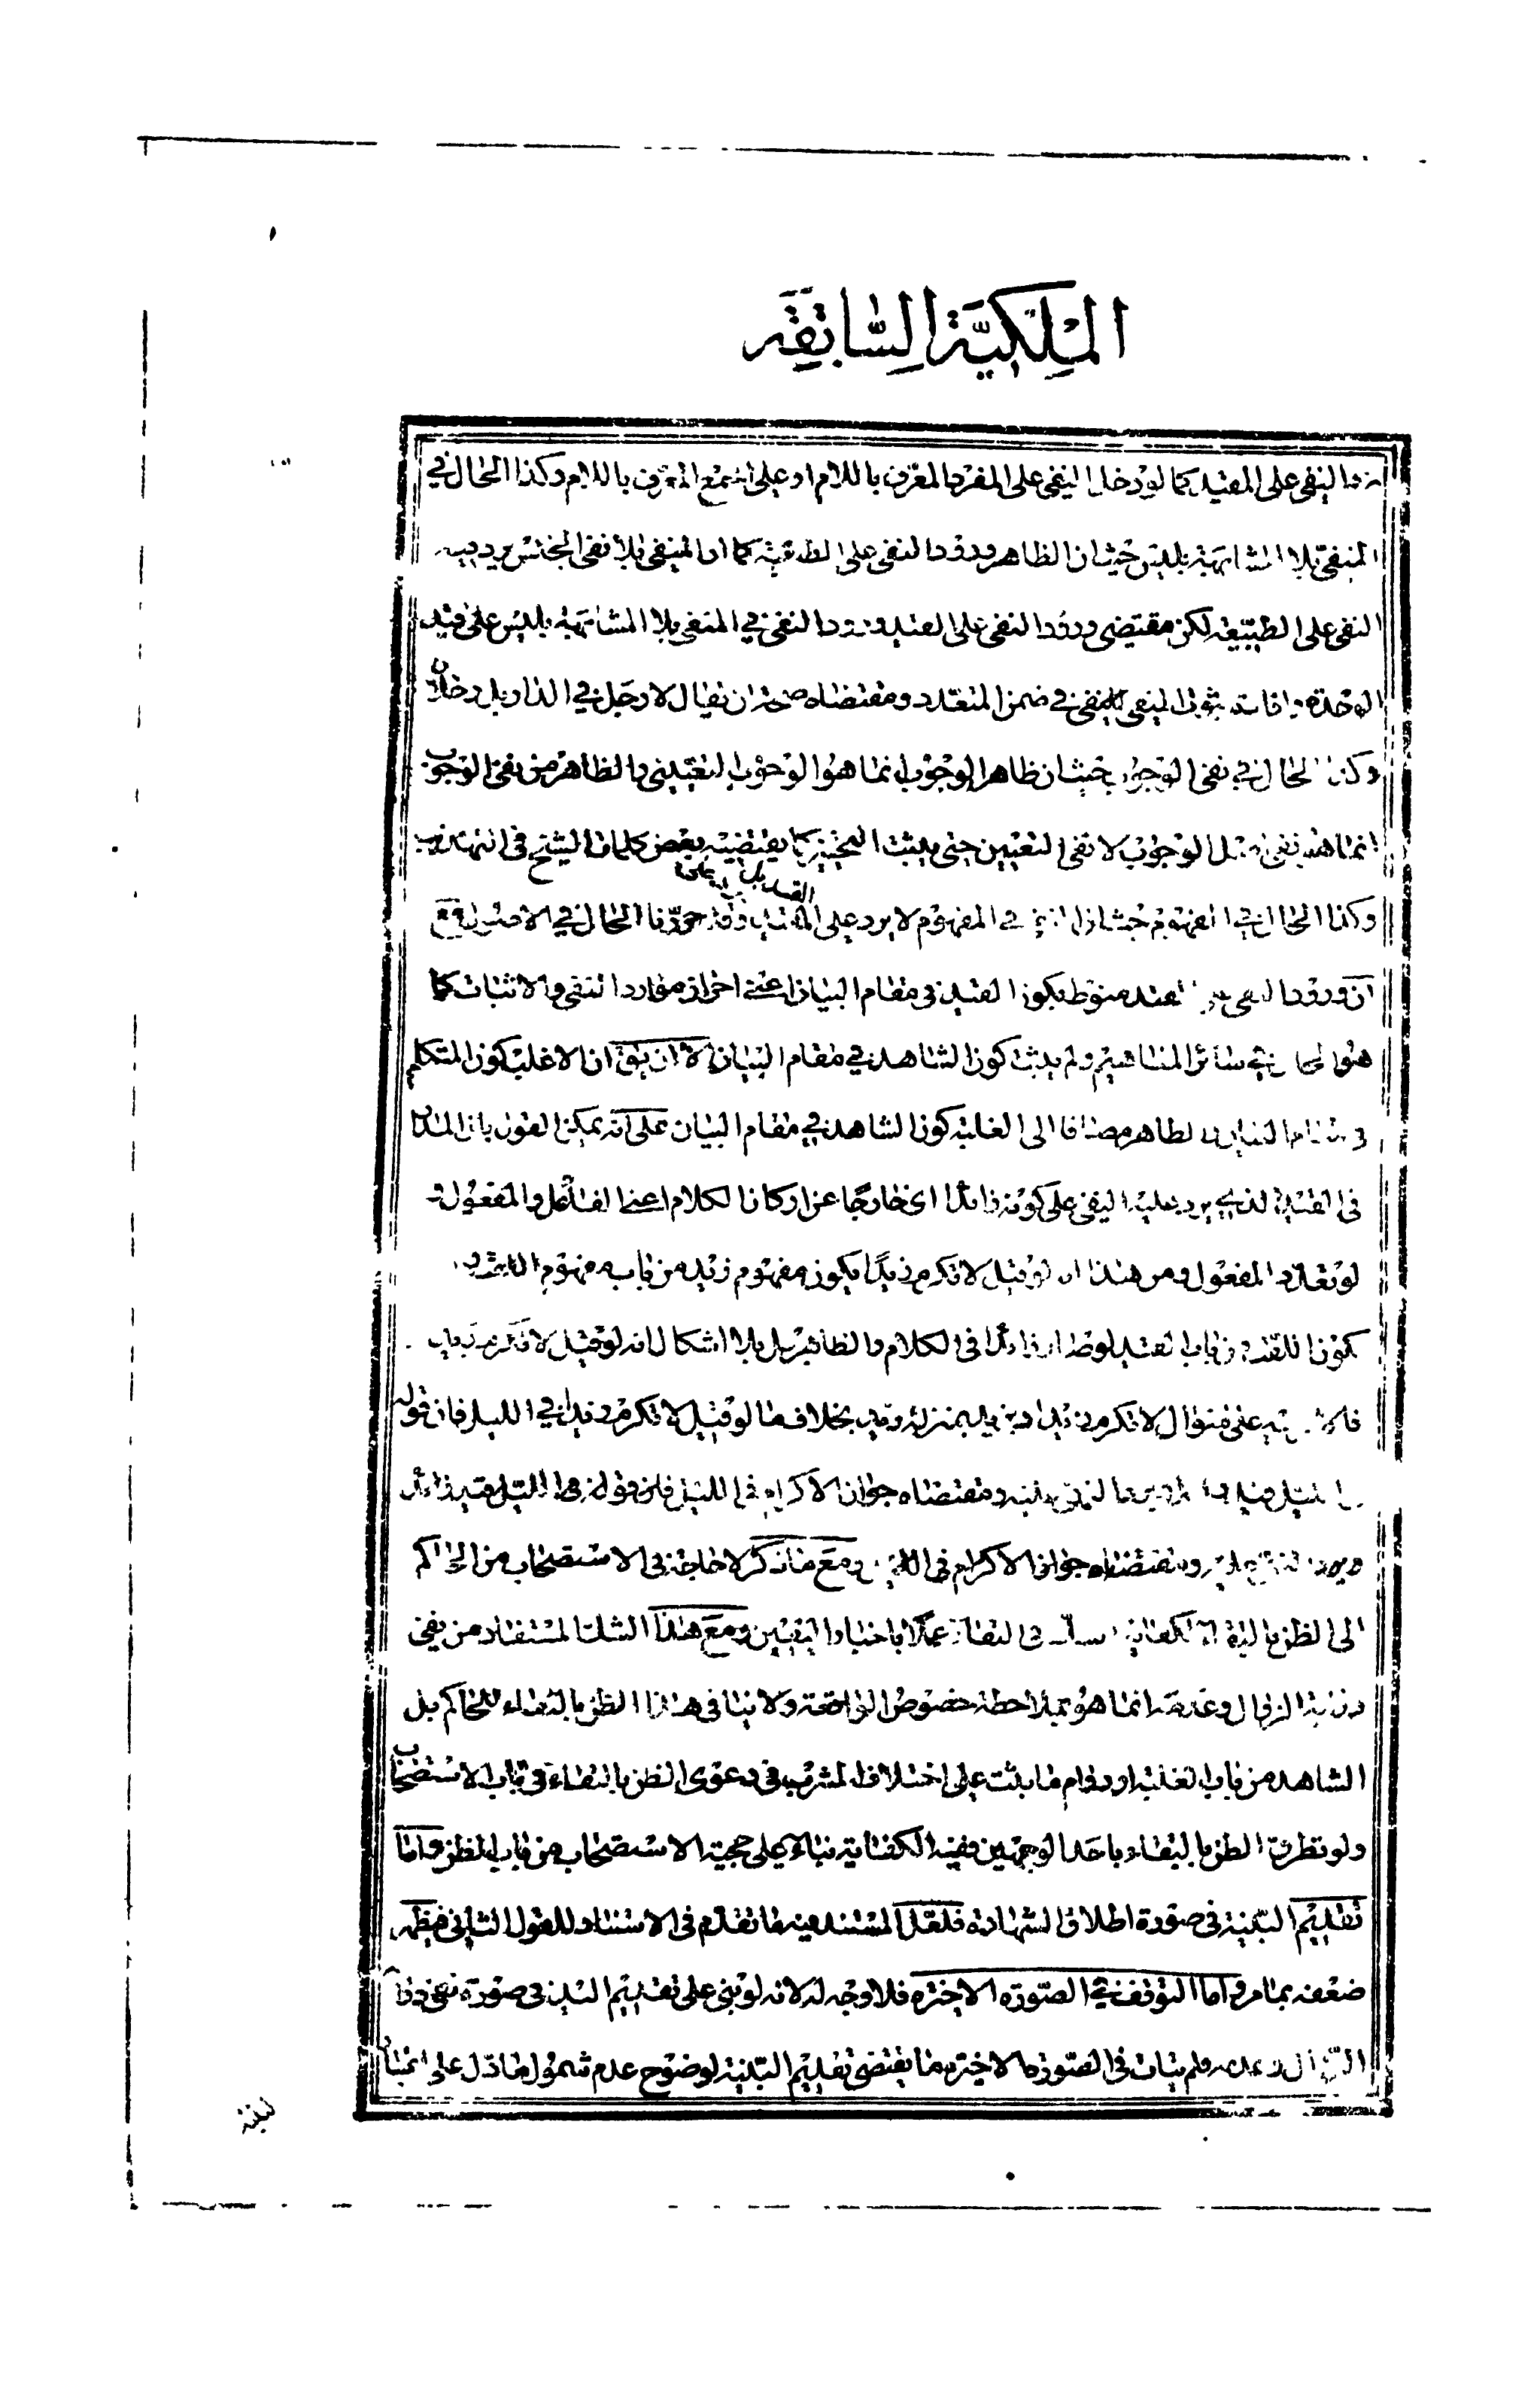 الملكية السابقة
النفى على المقيد كما لو دخل النفى على المفرد المعرف باللام او على الجمع المعرف باللام وكذا الحال فى
المنفى بلا المشابهة بليس حيث ان الظاهر ورود النفى على الطبيعة كما ان المنفى بلا نفى الجنس يرد فيه
النفى على الطبيعة لكن مقتضى ورود النفى على القيد ورود النفى فى المنفى بلا المشابهة بليس على قيد
الوحدة ثبوت المنفى فى ضمن المتعدد ومقتضاه صحة ان يقال لا رجل فى الدار بل رجلان
وكذا الحال فى نفى الوجوب حيث ان ظاهر الوجوب انما هو الوجوب التعيينى والظاهر من نفى الوجوب
انما هو نفى اصل الوجوب لا نفى التعيين حتى يثبت التخيير كما يقتضيه بعض كلمات الشيخ فى التهذيب
وكذا الحال فى المفهوم حيث ان النفى فى المفهوم لا يرد على القيد بل يرد على المقيد وقد حررنا الحال فى الاصول مع
ان ورود النفى على القيد منوط بكون القيد فى مقام البيان اعنى احراز موارد النفى والاثبات كما
هو الحال فى سائر المفاهيم ولم يثبت كون الشاهد فى مقام البيان الا ان يق ان الاغلب كون المتكلم
فى مقام البيان الظاهر مضافا الى الغلبة كون الشاهد فى مقام البيان على انه يمكن القول بان المدار
فى القيد الذى يرد عليه النفى على كونه زائدا اى خارجا عن اركان الكلام اعنى الفاعل والمفعول
لو تعدد المفعول ومن هذا انه لو قيل لا تكرم زيدا يكون مفهوم زيد من باب مفهوم اللقب
كون اللقب من باب القيد لو كان زائدا فى الكلام والظاهر بل بلا اشكال انه لو قيل لا تكرم
على منوال لا تكرم زيدا بمنزلة قيد بخلاف ما لو قيل لا تكرم زيدا فى الليل فان قوله
ومقتضاه جواز الاكرام فى الليل فان قوله فى الليل قيد زائد
ويرد النفى عليه ومقتضاه جواز الاكرام فى الليل ومع ما ذكر لا حاجة فى الاستصحاب من الحاكم
الى الظن بالبقاء لكفاية الشك فى البقاء عملا باخبار اليقين ومع هذا الشك المستفاد من نفى
دراية الزوال وعدمه انما هو بملاحظة خصوص الواقعة ولا ينافى هذا الظن بالبقاء للحاكم بل
الشاهد من باب الغلبة او دوام ما يثبت على اختلاف المشرب فى دعوى الظن بالبقاء فى باب الاستصحاب
ولو تطرق الظن بالبقاء باحد الوجهين ففيه الكفاية بناء على حجية الاستصحاب من باب الظن واما
تقديم البينة فى صورة اطلاق الشهادة فلعل المستند فيه ما تقدم فى الاستناد للقول الثانى فيظهر
ضعفه بما مر واما التوقف فى الصورة الاخيرة فلا وجه له لانه لو بنى على تقديم اليد فى صورة نفى دراية
الزوال وعدمه فلم يتات فى الصورة الاخيرة ما يقتضى تقديم البينة لوضوح عدم شمول ما دل على اعتبار
البينة